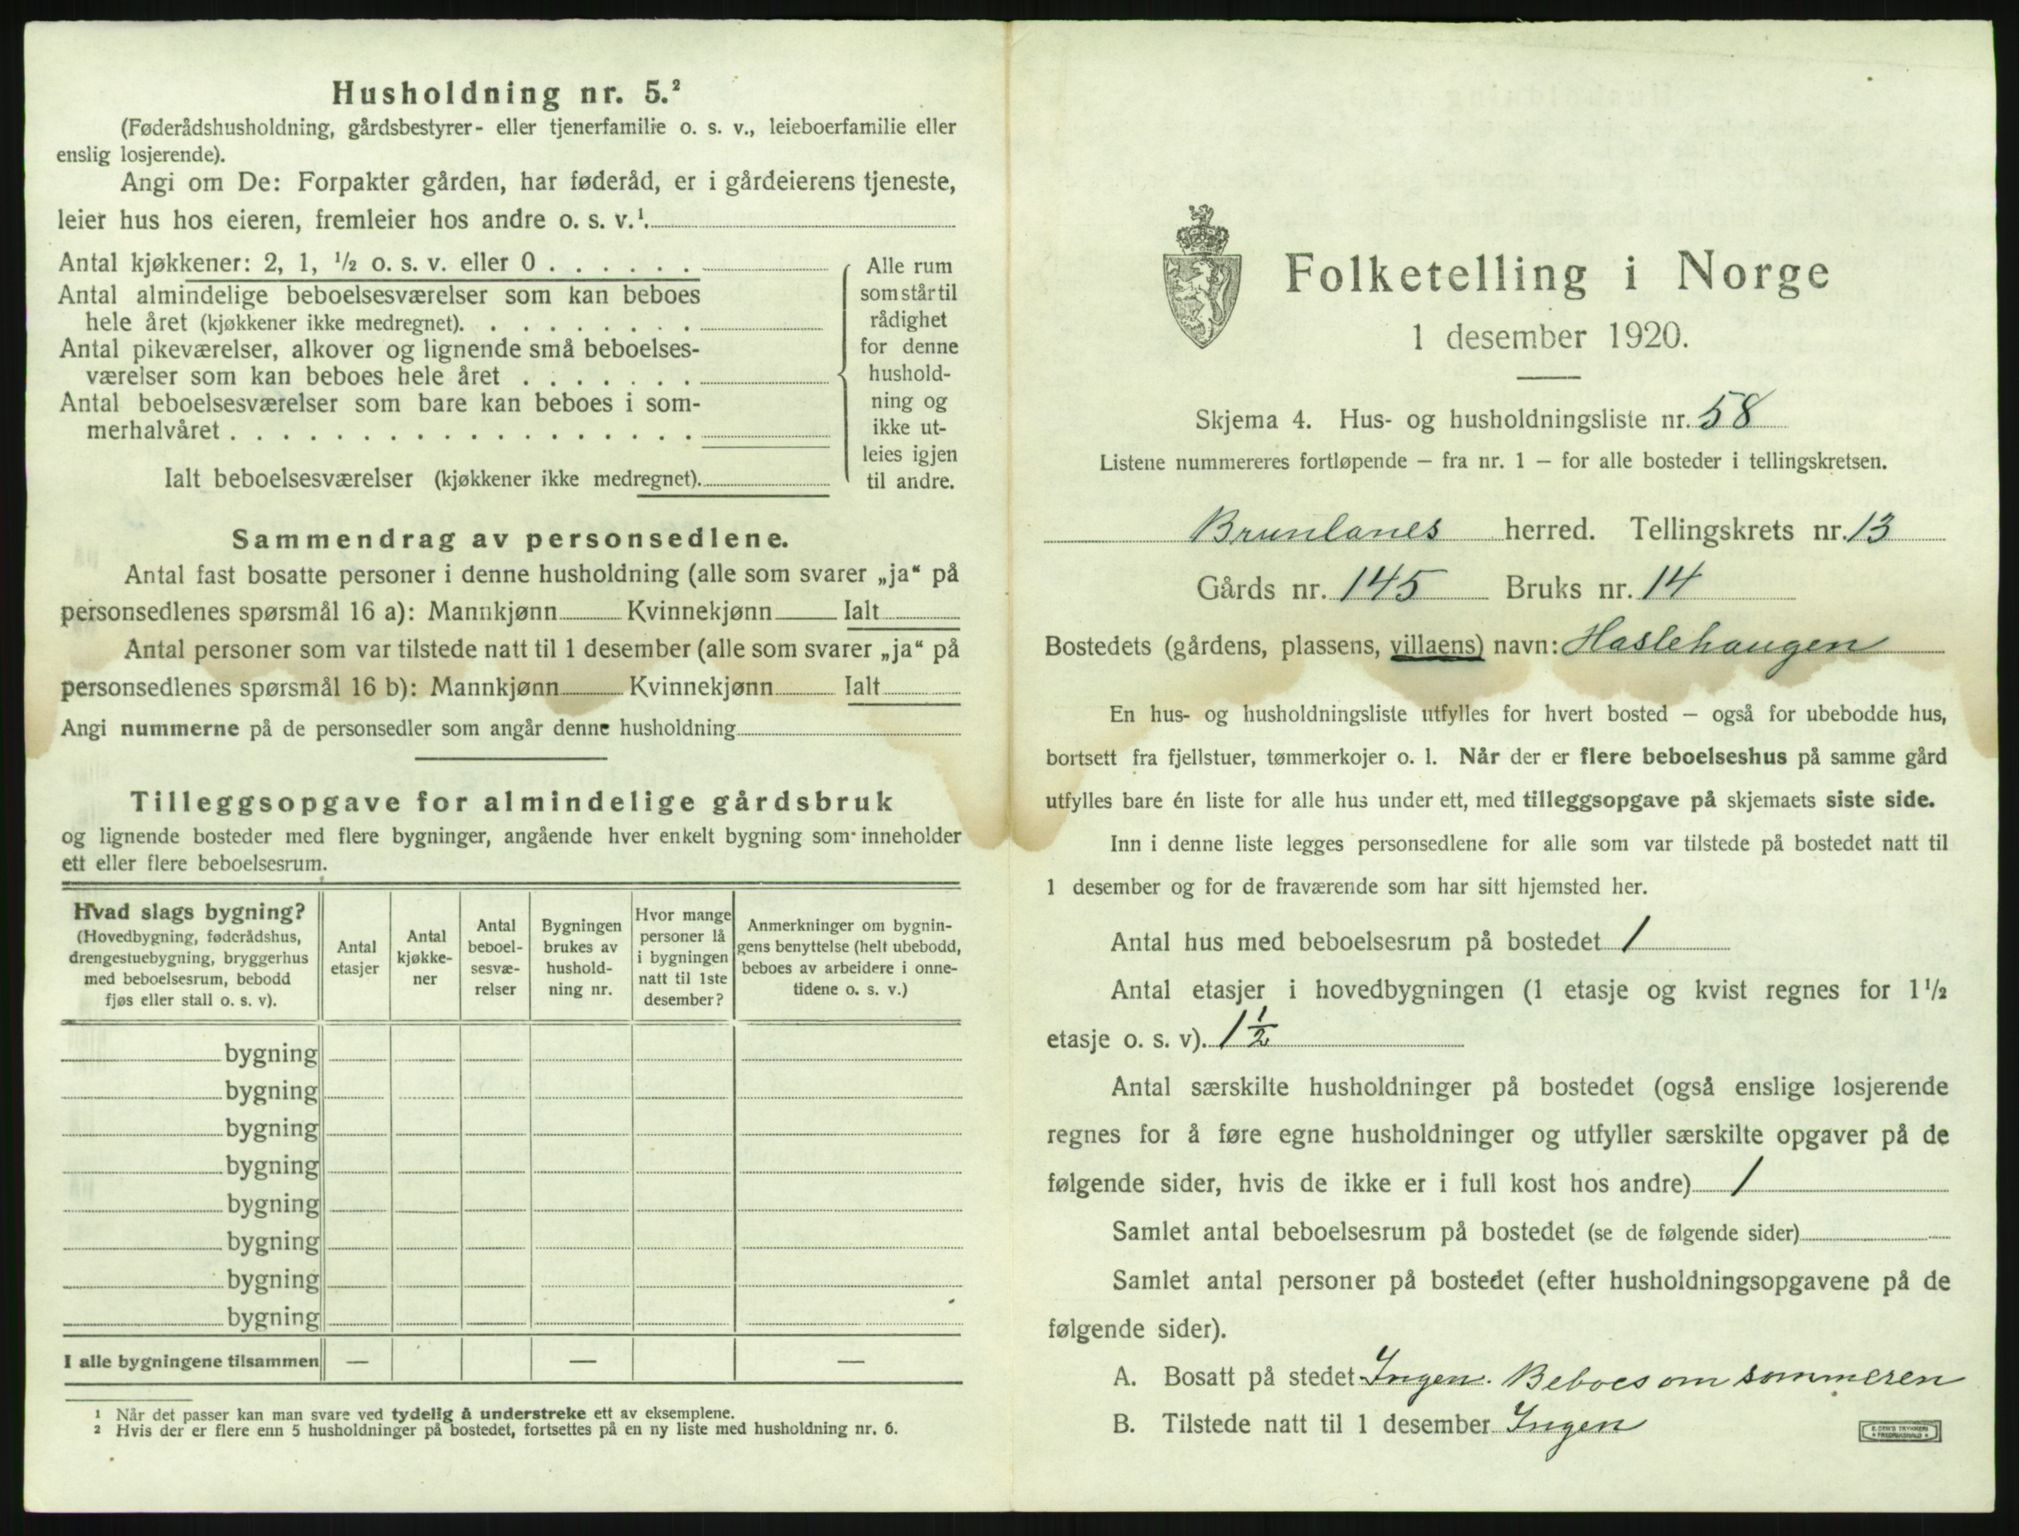 Husholdning nr. 5.²
(Føderådshusholdning, gårdsbestyrer- eller tjenerfamilie o. s. v., leieboerfamilie eller
enslig losjerende).
Angi om De: Forpakter gården, har føderåd, er i gårdeierens tjeneste,
leier hus hos eieren, fremleier hos andre o. s. v.¹.
Antal kjøkkener: 2, 1, ½ o. s. v. eller 0 . . . . . .
Antal almindelige beboelsesværelser som kan beboes
hele året (kjøkkener ikke medregnet). . . . . . . . .
Antal pikeværelser, alkover og lignende små beboelses-
værelser som kan beboes hele året . . . . . . .
Antal beboelsesværelser som bare kan beboes i som-
merhalvåret . . . . . . . . . . . . . . . . . .
Ialt beboelsesværelser (kjøkkener ikke medregnet).
Alle rum
som står til
rådighet
for denne
hushold-
ning og
ikke ut-
leies igjen
til andre.
Sammendrag av personsedlene.
Antal fast bosatte personer i denne husholdning (alle som svarer „ja“ på
personsedlenes spørsmål 16 a): Mannkjønn Kvinnekjønn Ialt
Antal personer som var tilstede natt til 1 desember (alle som svarer „ja“ på
personsedlenes spørsmål 16 b): Mannkjønn Kvinnekjønn Ialt
Angi nummerne på de personsedler som angår denne husholdning
Tilleggsopgave for almindelige gårdsbruk
og lignende bosteder med flere bygninger, angående hver enkelt bygning som inneholder
ett eller flere beboelsesrum.
Hvad slags bygning?
(Hovedbygning, føderådshus,
drengestuebygning, bryggerhus
med beboelsesrum, bebodd
fjøs eller stall o. s. v).
Antal
etasjer
Antal
kjøkke-
ner
Antal
beboel-
sesvæ-
relser
Bygningen
brukes av
hushold-
ning nr.
Hvor mange
personer lå
i bygningen
natt til 1ste
desember?
Anmerkninger om bygnin-
gens benyttelse (helt ubebodd,
beboes av arbeidere i onne-
tidene o. s. v.)
bygning
bygning
bygning
bygning
bygning
bygning
bygning
bygning
I alle bygningene tilsammen — — —
¹ Når det passer kan man svare ved tydelig å understreke ett av eksemplene.
² Hvis der er flere enn 5 husholdninger på bostedet, fortsettes på en ny liste med husholdning nr. 6.
Folketelling i Norge
1 desember 1920.
Skjema 4. Hus- og husholdningsliste nr. 58
Listene nummereres fortløpende – fra nr. 1 – for alle bosteder i tellingskretsen.
Brunlanes herred. Tellingskrets nr. 13
Gårds nr. 145 Bruks nr. 14
Bostedets (gårdens, plassens, villaens) navn: Haslehaugen
En hus- og husholdningsliste utfylles for hvert bosted – også for ubebodde hus,
bortsett fra fjellstuer, tømmerkojer o. l. Når der er flere beboelseshus på samme gård
utfylles bare én liste for alle hus under ett, med tilleggsopgave på skjemaets siste side.
Inn i denne liste legges personsedlene for alle som var tilstede på bostedet natt til
1 desember og for de fraværende som har sitt hjemsted her.
Antal hus med beboelsesrum på bostedet 1
Antal etasjer i hovedbygningen (1 etasje og kvist regnes for 1½
etasje o. s. v). 1½
Antal særskilte husholdninger på bostedet (også enslige losjerende
regnes for å føre egne husholdninger og utfyller særskilte opgaver på de
følgende sider, hvis de ikke er i full kost hos andre) 1
Samlet antal beboelsesrum på bostedet (se de følgende sider)
Samlet antal personer på bostedet (efter husholdningsopgavene på de
følgende sider).
A. Bosatt på stedet Ingen. Beboes om sommeren
B. Tilstede natt til 1 desember Ingen